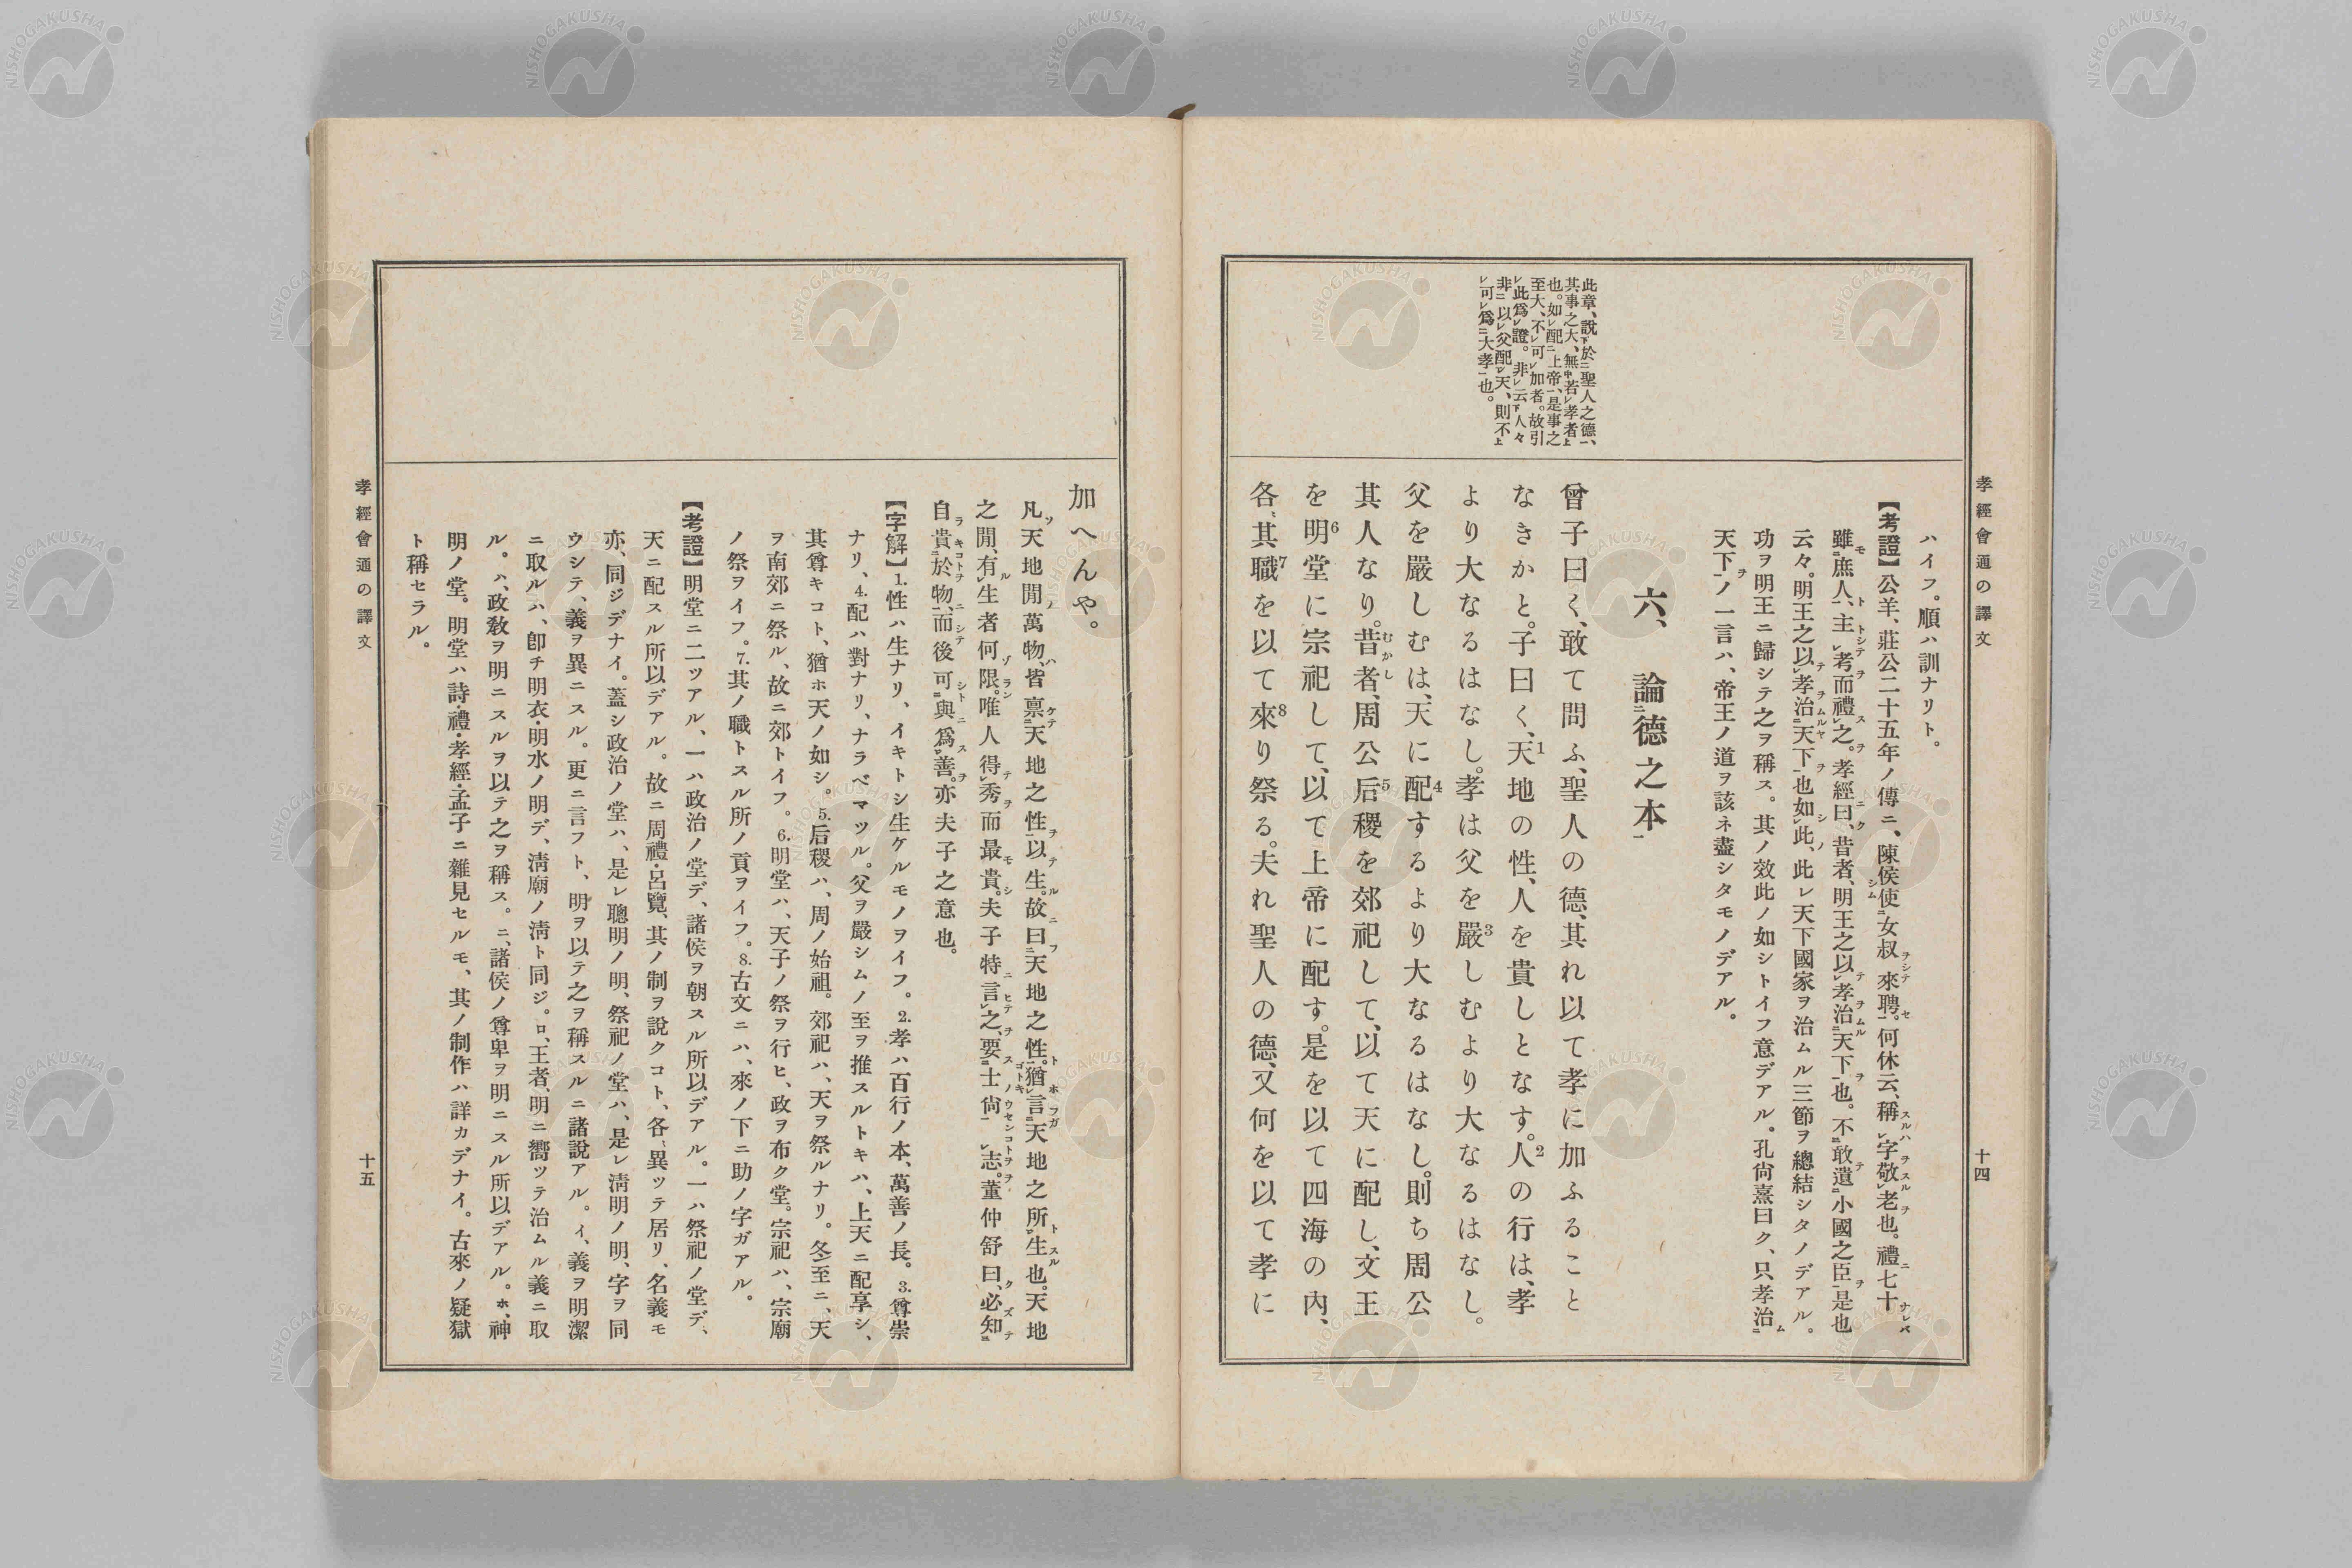 孝經會通の譯文
十四
ハイフ。順ハ訓ナリト。
【考證】公羊、莊公二十五年ノ傳ニ、陳侯使女叔來聘。何休云、稱字敬老也。禮七十
雖庶人、主孝而禮之。孝經曰、昔者、明王之以孝治天下也。不敢遺小國之臣是也
云々。明王之以孝治天下也如此、此レ天下國家ヲ治ムル三節ヲ總結シタノデアル。
功ヲ明王ニ歸シテ之ヲ稱ス。其ノ效此ノ如シトイフ意デアル。孔尙熹曰ク、只孝治
天下ノ一言ハ、帝王ノ道ヲ該ネ盡シタモノデアル。
六、論德之本
此章、說於聖人之德、
其事之大、無若孝者
也。如配上帝、是事之
至大、不可加者。故引
此爲證。非云人々
非以父配天、則不
可爲大孝也。
曾子曰く、敢て問ふ、聖人の德、其れ以て孝に加ふること
なきかと。子曰く、天1地の性、人を貴しとなす。人2の行は、孝
より大なるはなし。孝は父を嚴3しむより大なるはなし。
父を嚴しむは、天に配4するより大なるはなし。則ち周公
其人なり。昔者、周公后5稷を郊祀して、以て天に配し、文王
を明6堂に宗祀して、以て上帝に配す。是を以て四海の內、
各〻其職7を以て來8り祭る。夫れ聖人の德、又何を以て孝に
加へんや。
凡天地閒萬物、皆稟天地之性以生。故曰天地之性。猶言天地之所生也。天地
之閒、有生者何限。唯人得秀而最貴。夫子特言之、要士尙志。董仲舒曰、必知
自貴於物、而後可與爲善。亦夫子之意也。
【字解】1.性ハ生ナリ、イキトシ生ケルモノヲイフ。2.孝ハ百行ノ本、萬善ノ長。3.尊崇
ナリ、4.配ハ對ナリ、ナラベマツル。父ヲ嚴シムノ至ヲ推スルトキハ、上天ニ配享シ、
其尊キコト、猶ホ天ノ如シ。5.后稷ハ、周ノ始祖。郊祀ハ、天ヲ祭ルナリ。冬至ニ、天
ヲ南郊ニ祭ル、故ニ郊トイフ。6.明堂ハ、天子ノ祭ヲ行ヒ、政ヲ布ク堂。宗祀ハ、宗廟
ノ祭ヲイフ。7.其ノ職トスル所ノ貢ヲイフ。8.古文ニハ、來ノ下ニ助ノ字ガアル。
【考證】明堂ニ二ツアル、一ハ政治ノ堂デ、諸侯ヲ朝スル所以デアル。一ハ祭祀ノ堂デ、
天ニ配スル所以デアル。故ニ周禮・呂覽、其ノ制ヲ說クコト、各〻異ツテ居リ、名義モ
亦、同ジデナイ。蓋シ政治ノ堂ハ、是レ聰明ノ明、祭祀ノ堂ハ、是レ淸明ノ明、字ヲ同
ウシテ、義ヲ異ニスル。更ニ言フト、明ヲ以テ之ヲ稱スルニ諸說アル。イ、義ヲ明潔
ニ取ルハ、卽チ明衣・明水ノ明デ、淸廟ノ淸ト同ジ。ロ、王者、明ニ嚮ツテ治ムル義ニ取
ル。ハ、政敎ヲ明ニスルヲ以テ之ヲ稱ス。ニ、諸侯ノ尊卑ヲ明ニスル所以デアル。ホ、神
明ノ堂。明堂ハ詩・禮・孝經・孟子ニ雜見セルモ、其ノ制作ハ詳カデナイ。古來ノ疑獄
ト稱セラル。
孝經會通の譯文
十五